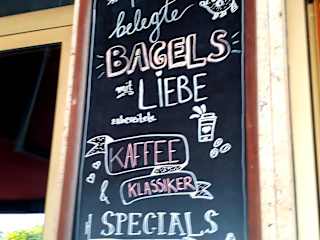 belegte
BAGELS
mit
LIEBE
zubereitet.
KAFFEE
&
KLASSIKER
SPECIALS